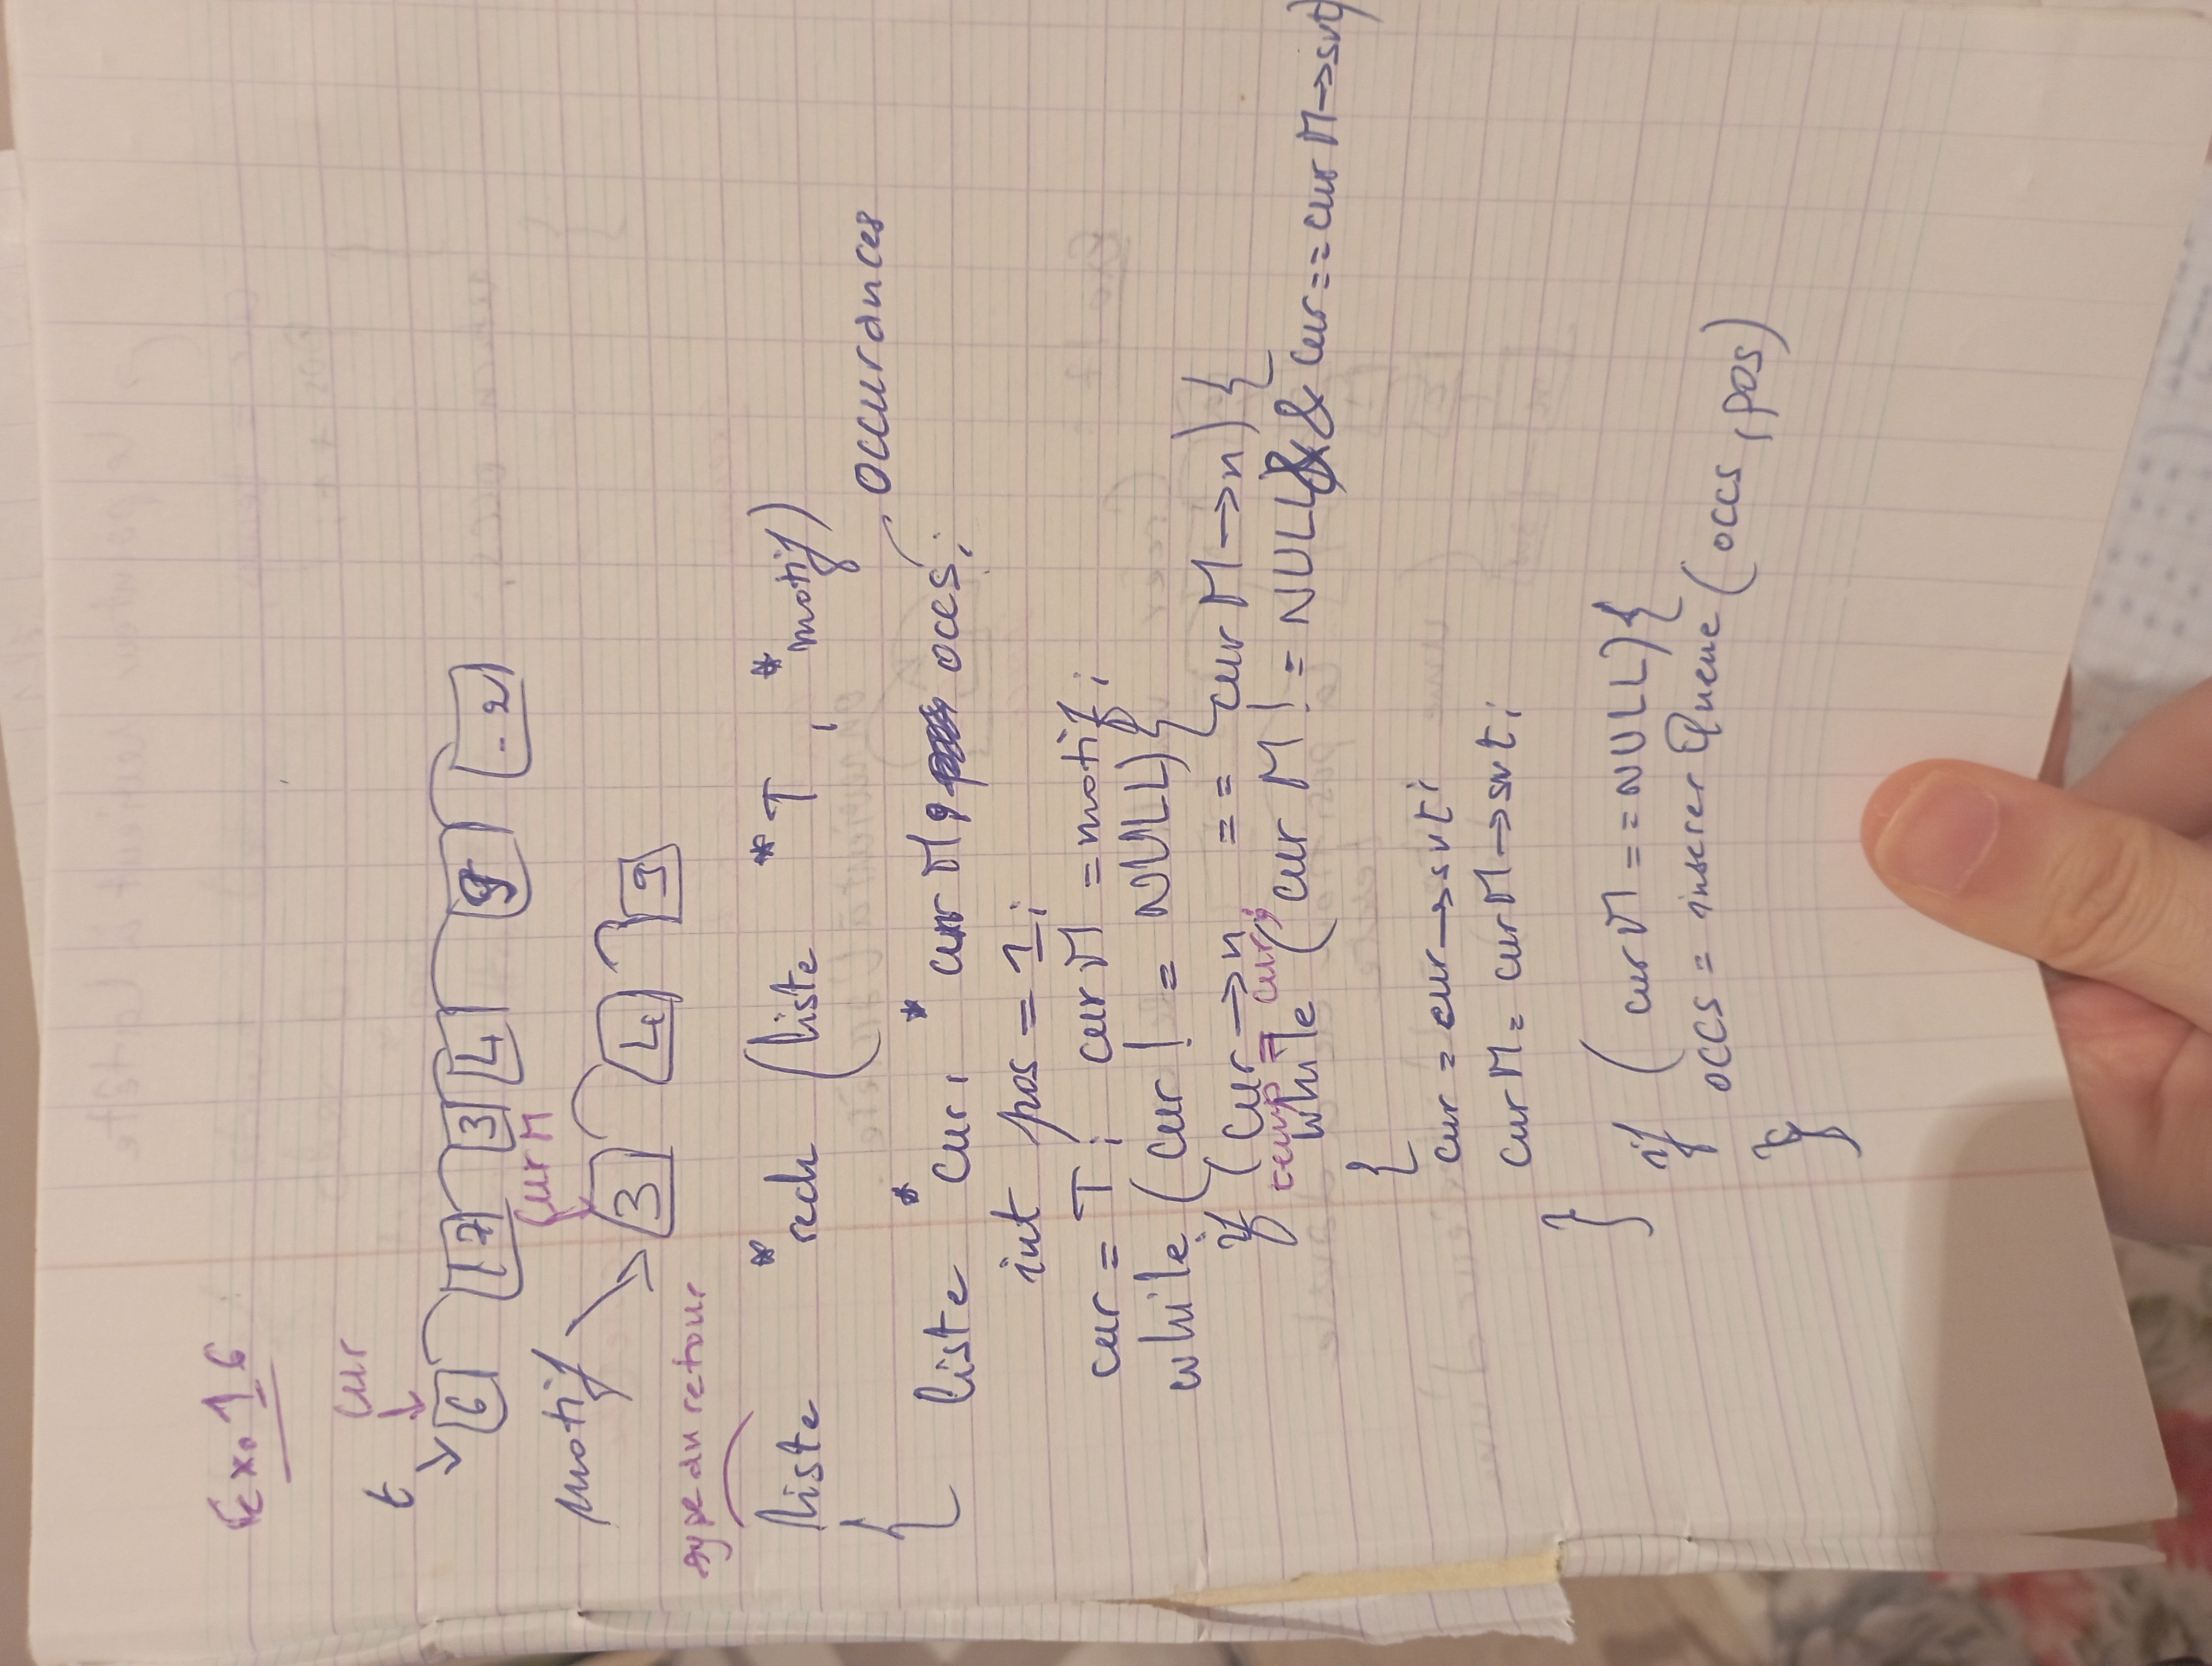 Exo 16
cur
t
6 17 3 4 9 -2
cur M
motif
3 4 9
type du retour
liste *rech (liste *T, *motif)
{
occurances
liste *cur, *cur M, occs;
int pos = 1;
cur = T; cur M = motif;
while (cur != NULL) {
if (cur->n == cur M->n) {
temp = cur;
while (cur M != NULL && cur == cur M->svt)
{
cur = cur->svt;
cur M = cur M->svt;
}
if (cur M == NULL) {
occs = inserer Queue (occs, pos)
}